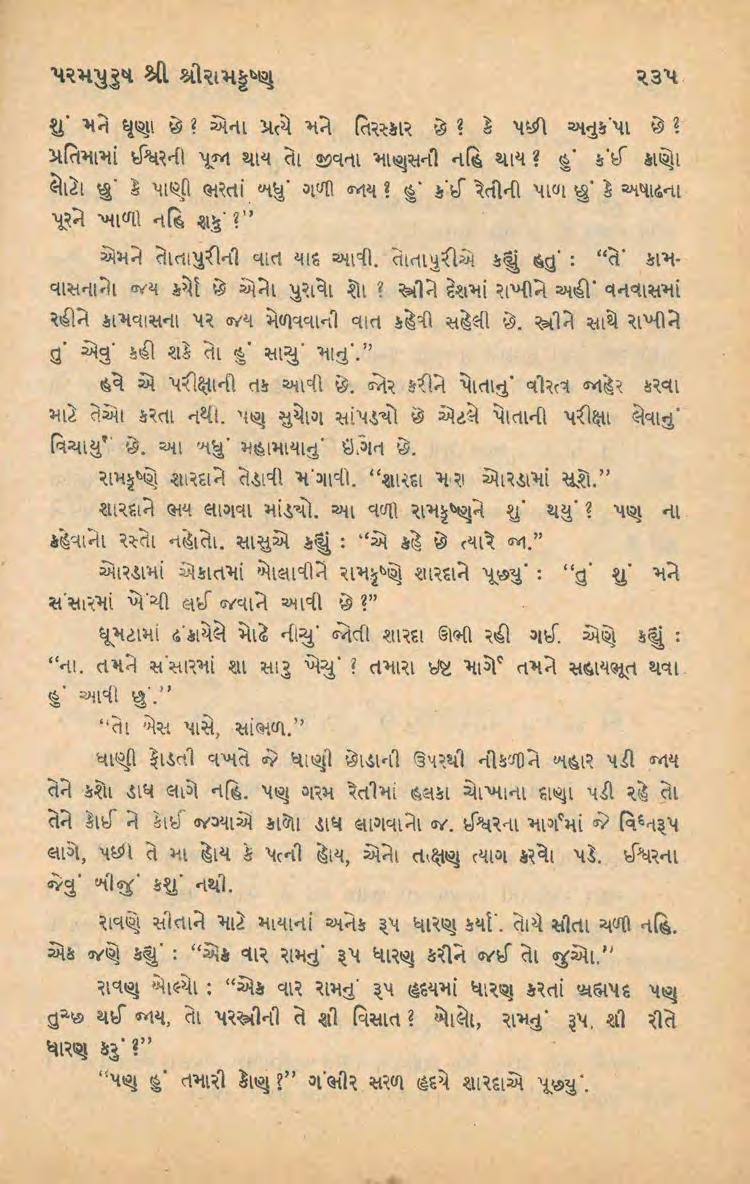 પરમપુરુષ શ્રી શ્રીરામકૃષ્ણ ૨૩૫
શું મને ઘૃણા છે? એના પ્રત્યે મને તિરસ્કાર છે? કે પછી અનુકંપા છે?
પ્રતિમામાં ઈશ્વરની પૂજા થાય તો જીવતા માણસની નહિ થાય? હું કંઈ કાણો
લોટો છું કે પાણી ભરતાં બધું ગળી જાય? હું કંઈ રેતીની પાળ છું કે અષાઢના
પૂરને ખાળી નહિ શકું?”
એમને તોતાપુરીની વાત યાદ આવી. તોતાપુરીએ કહ્યું હતું : “તેં કામ-
વાસનાનો જય કર્યો છે એનો પુરાવો શો ? સ્ત્રીને દેશમાં રાખીને અહીં વનવાસમાં
રહીને કામવાસના પર જય મેળવવાની વાત કહેવી સહેલી છે. સ્ત્રીને સાથે રાખીને
તું એવું કહી શકે તો હું સાચું માનું.”
હવે એ પરીક્ષાની તક આવી છે. જોર કરીને પોતાનું વીરત્વ જાહેર કરવા
માટે તેઓ કરતા નથી. પણ સુયોગ સાંપડ્યો છે એટલે પોતાની પરીક્ષા લેવાનું
વિચાર્યું છે. આ બધું મહામાયાનું ઇંગિત છે.
રામકૃષ્ણે શારદાને તેડાવી મંગાવી. “શારદા મારા ઓરડામાં સૂશે.”
શારદાને ભય લાગવા માંડ્યો. આ વળી રામકૃષ્ણને શું થયું? પણ ના
કહેવાનો રસ્તો નહોતો. સાસુએ કહ્યું : “એ કહે છે ત્યારે જા.”
ઓરડામાં એકાંતમાં બોલાવીને રામકૃષ્ણે શારદાને પૂછ્યું : “તું શું મને
સંસારમાં ખેંચી લઈ જવાને આવી છે?”
ઘૂમટામાં ઢંકાયેલે મોઢે નીચું જોતી શારદા ઊભી રહી ગઈ. એણે કહ્યું :
“ના. તમને સંસારમાં શા સારુ ખેચું ? તમારા ઇષ્ટ માર્ગે તમને સહાયભૂત થવા
હું આવી છું.”
“તો બેસ પાસે, સાંભળ.”
ધાણી ફોડતી વખતે જે ધાણી છોડાની ઉપરથી નીકળીને બહાર પડી જાય
તેને કશો ડાઘ લાગે નહિ. પણ ગરમ રેતીમાં હલકા ચોખાના દાણા પડી રહે તો
તેને કોઈ ને કોઈ જગ્યાએ કાળો ડાઘ લાગવાનો જ. ઈશ્વરના માર્ગમાં જે વિઘ્નરૂપ
લાગે, પછી તે મા હોય કે પત્ની હોય, એનો તત્ક્ષણ ત્યાગ કરવો પડે. ઈશ્વરના
જેવું બીજું કશું નથી.
રાવણે સીતાને માટે માયાનાં અનેક રૂપ ધારણ કર્યાં. તોયે સીતા ચળી નહિ.
એક જણે કહ્યું : “એક વાર રામનું રૂપ ધારણ કરીને જઈ તો જુઓ.”
રાવણ બોલ્યો : “એક વાર રામનું રૂપ હૃદયમાં ધારણ કરતાં બ્રહ્મપદ પણ
તુચ્છ થઈ જાય, તો પરસ્ત્રીની તે શી વિસાત? બોલો, રામનું રૂપ શી રીતે
ધારણ કરું?”
“પણ હું તમારી કોણ?” ગંભીર સરળ હૃદયે શારદાએ પૂછ્યું.